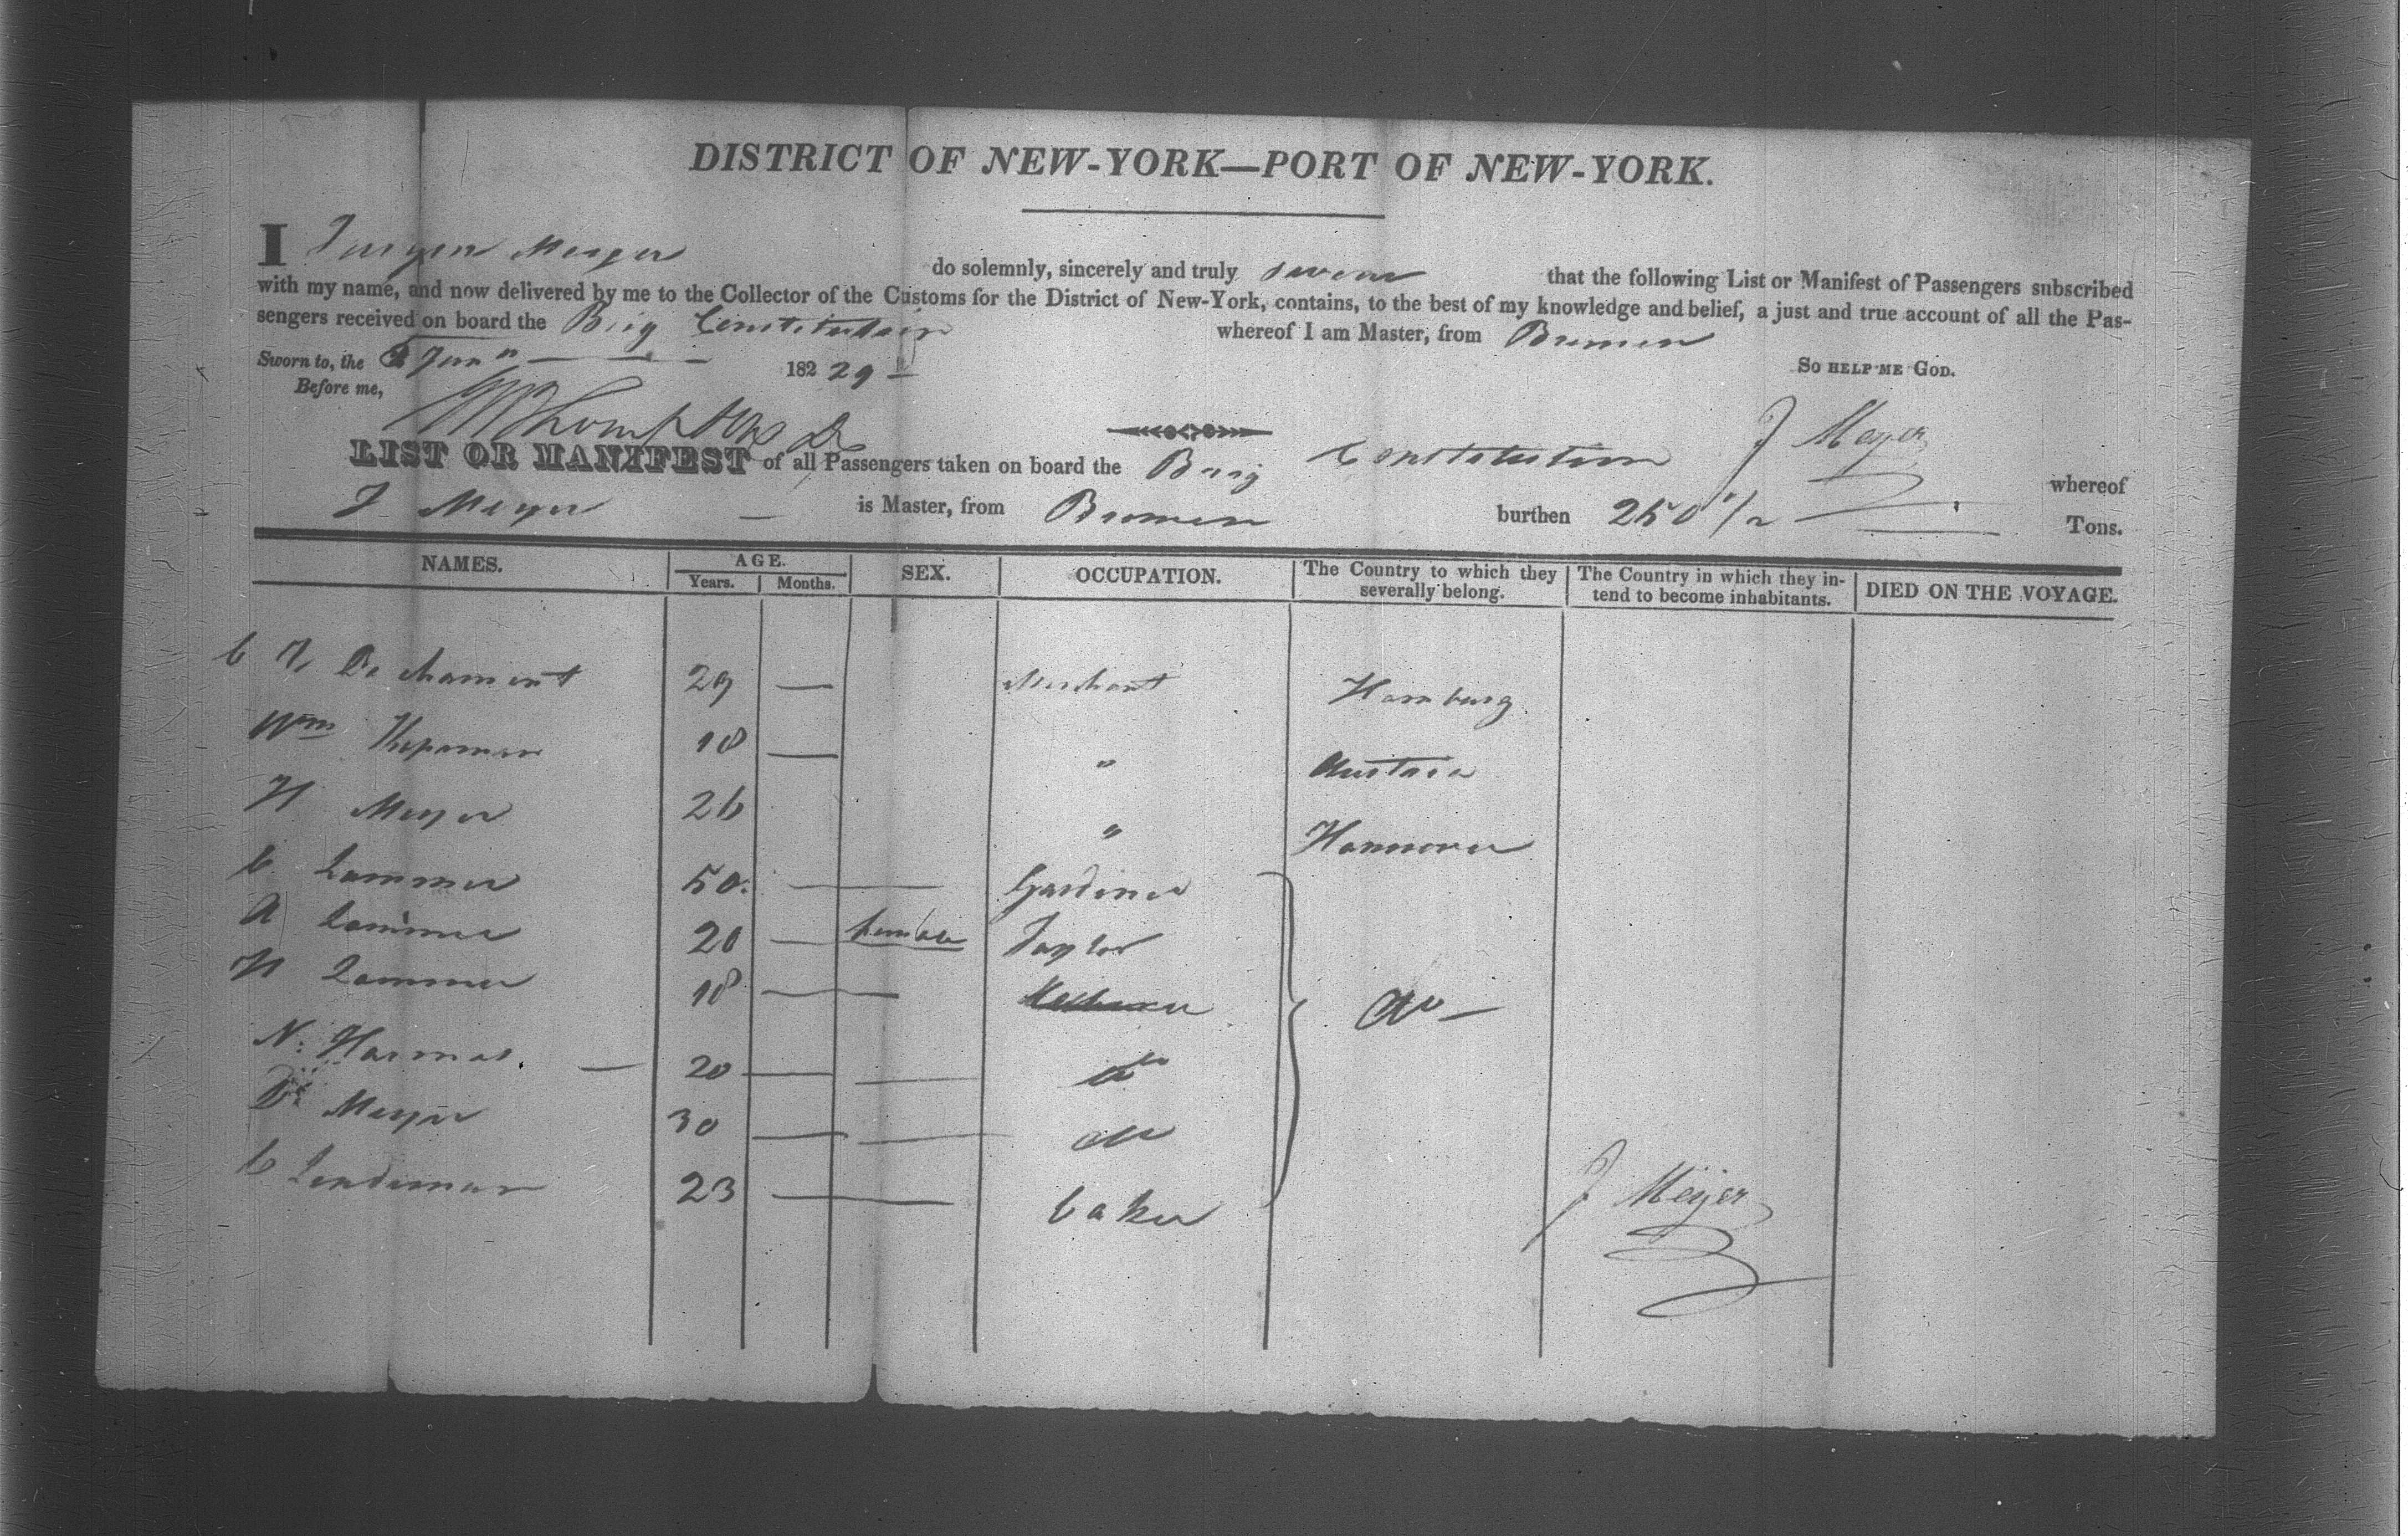 DISTRICT OF NEW-YORK—PORT OF NEW-YORK.
I Jurgen Meyer do solemnly, sincerely and truly swear that the following List or Manifest of Passengers subscribed
with my name, and now delivered by me to the Collector of the Customs for the District of New-York, contains, to the best of my knowledge and belief, a just and true account of all the Pas-
sengers received on board the Brig Constitution whereof I am Master, from Bremen
Sworn to, the Jany 182 29 So HELP ME GOD.
Before me,
J Meyer
LIST OR MANIFEST of all Passengers taken on board the Brig Constitution whereof
J Meyer is Master, from Bremen burthen 250 1/2 Tons.
NAMES. AGE. Years. Months. SEX. OCCUPATION. The Country to which they severally belong. The Country in which they in-tend to become inhabitants. DIED ON THE VOYAGE.
C F 29 — Merchant Hamburg
Wm 18 — " Austria
H Meyer 26 " Hannover
C Lammer 50 — Gardiner
A Lammer 20 — female Taylor
H Lammer 18 — do —
N: Harmes — 20 — — do
D: Meyer 30 — — do
C Lindeman 23 — baker
J Meyer